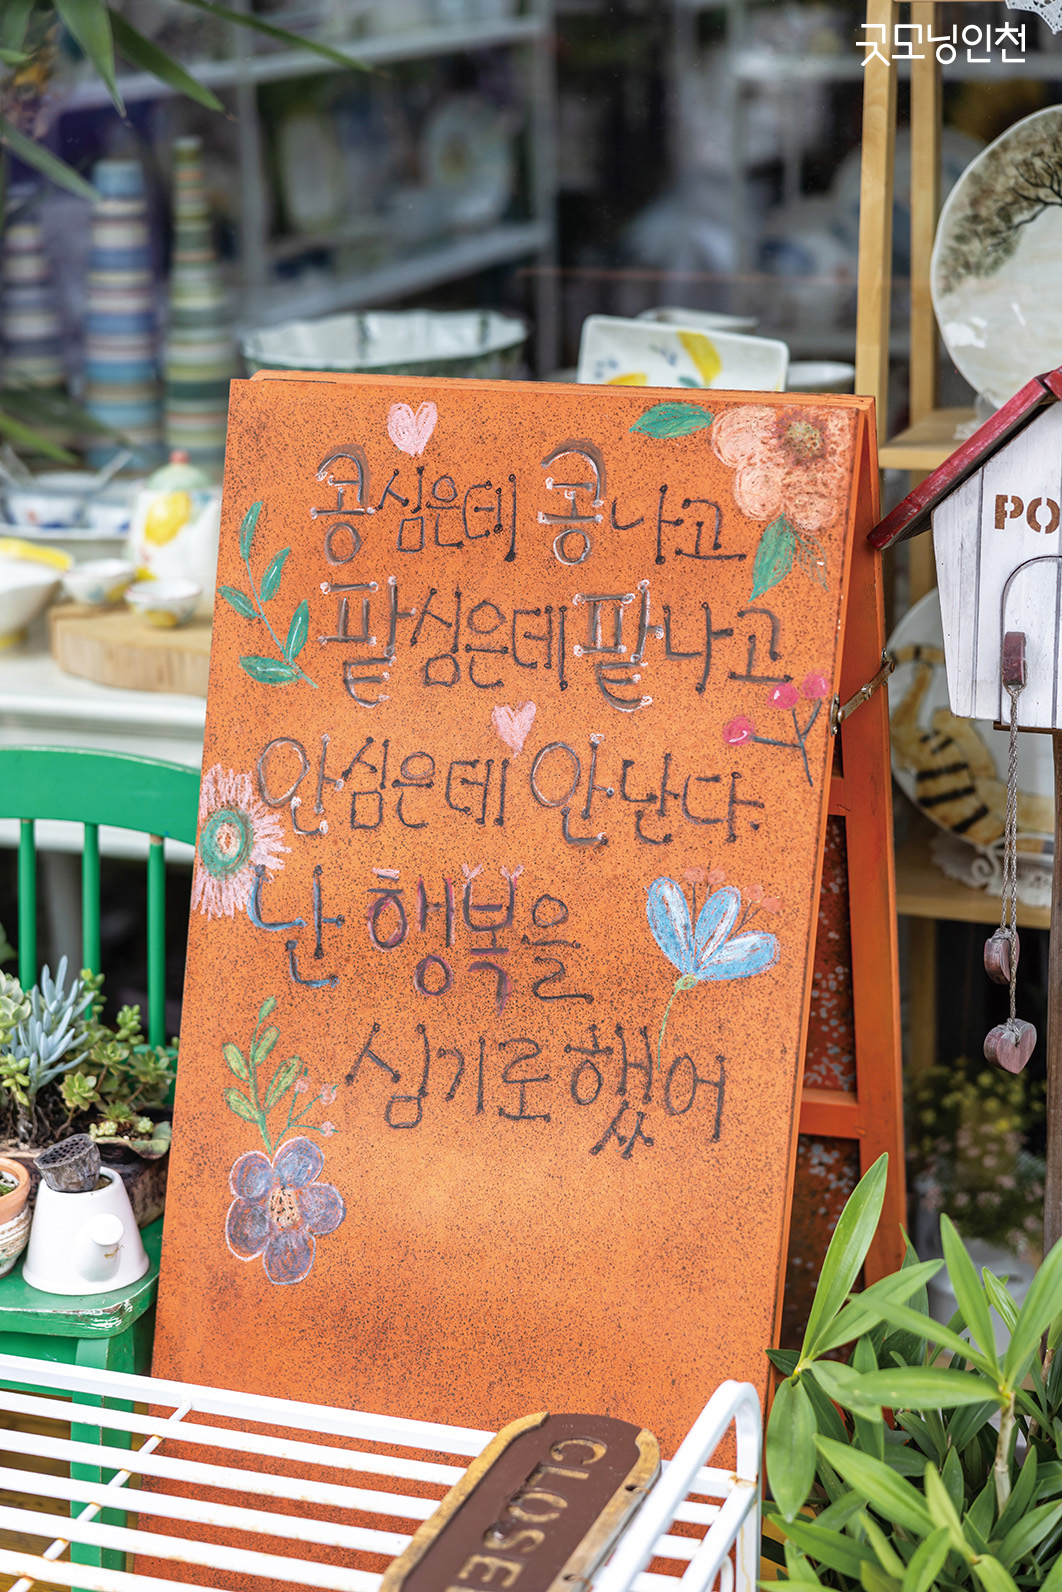 굿모닝인천
콩심은데 콩나고
팥심은데 팥나고
안심은데 안난다.
난 행복을
심기로했어
PO
CLOSE